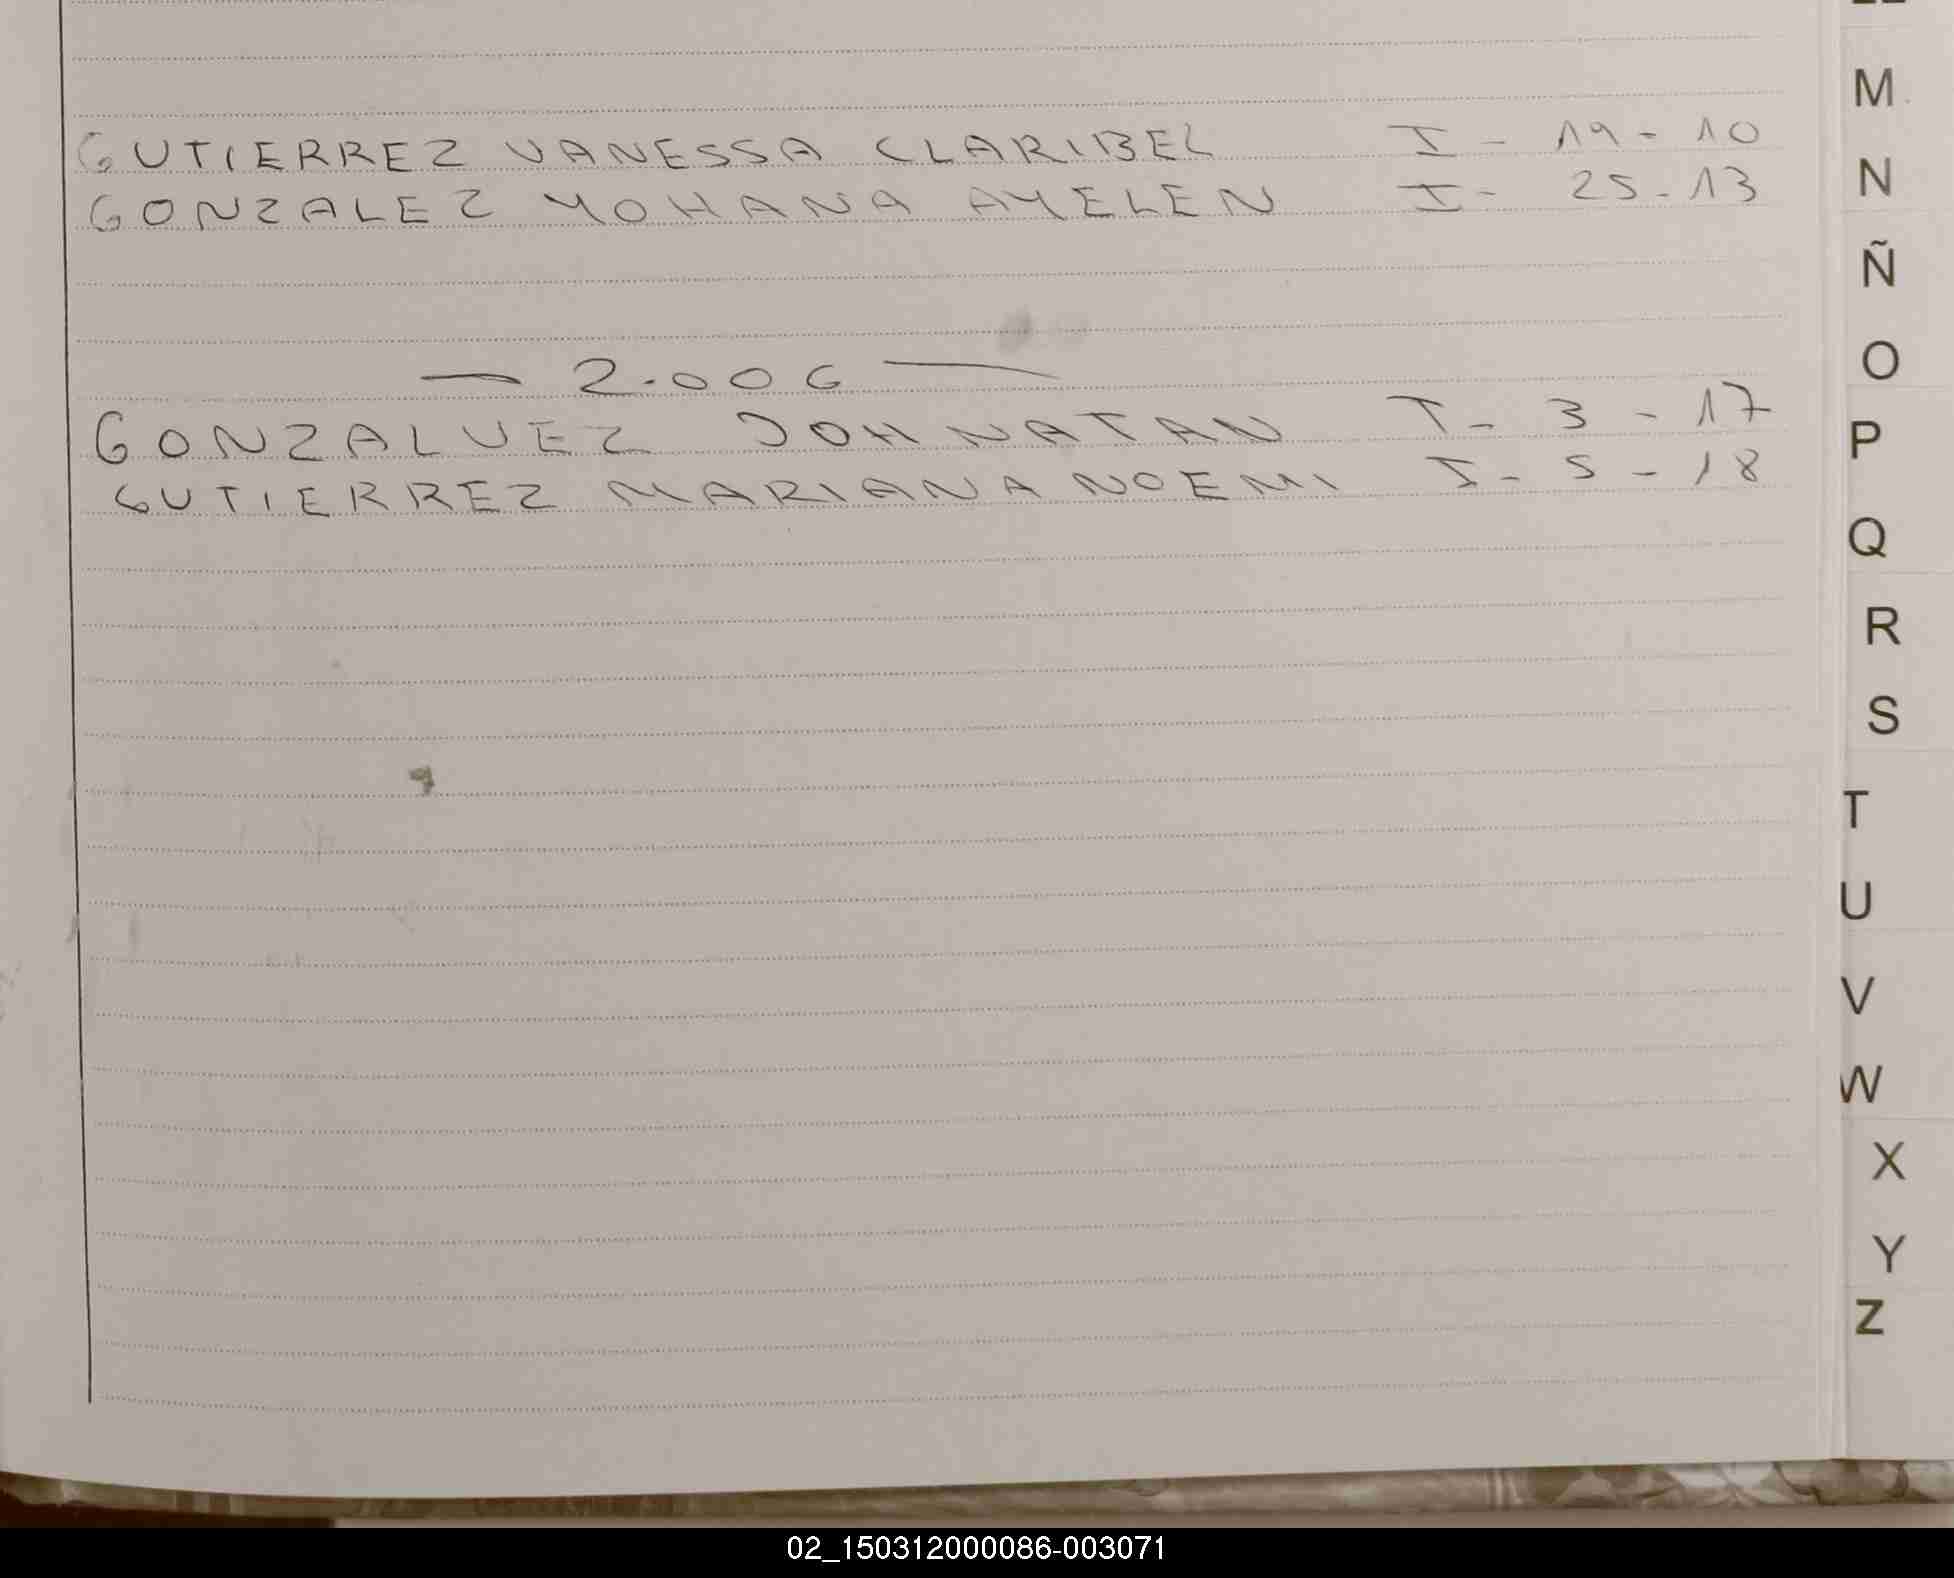 GUTIERREZ VANESSA CLARIBEL I - 19 - 10
GONZALEZ YOHANA AYELEN I - 25 - 13
— 2.006 —
GONZALVEZ JOHNATAN I - 3 - 17
GUTIERREZ MARIANA NOEMI I - 5 - 18
M
N
Ñ
O
P
Q
R
S
T
U
V
W
X
Y
Z
02_150312000086-003071